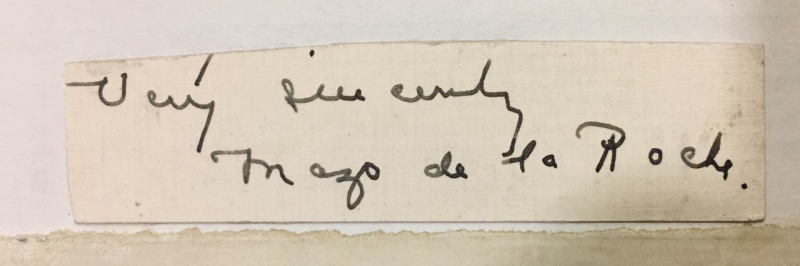 Very sincerely
Mazo de la Roche.